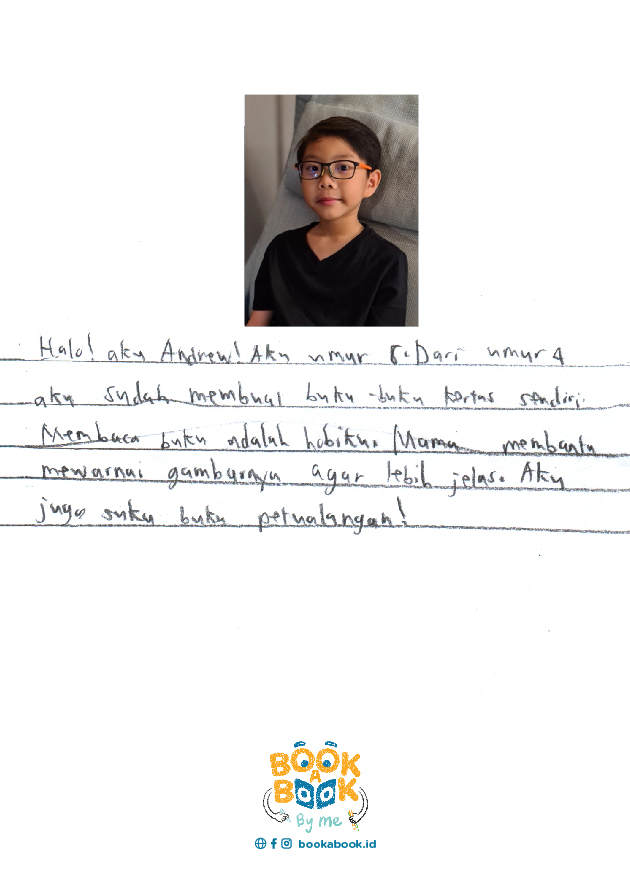 Halo! aku Andrew! Aku umur 8. Dari umur 4
aku sudah membuat buku-buku kertas sendiri.
Membaca buku adalah hobiku. Mama membantu
mewarnai gambarnya agar lebih jelas. Aku
juga suka buku petualangan!
BOOK
A
BOOK
By me
bookabook.id